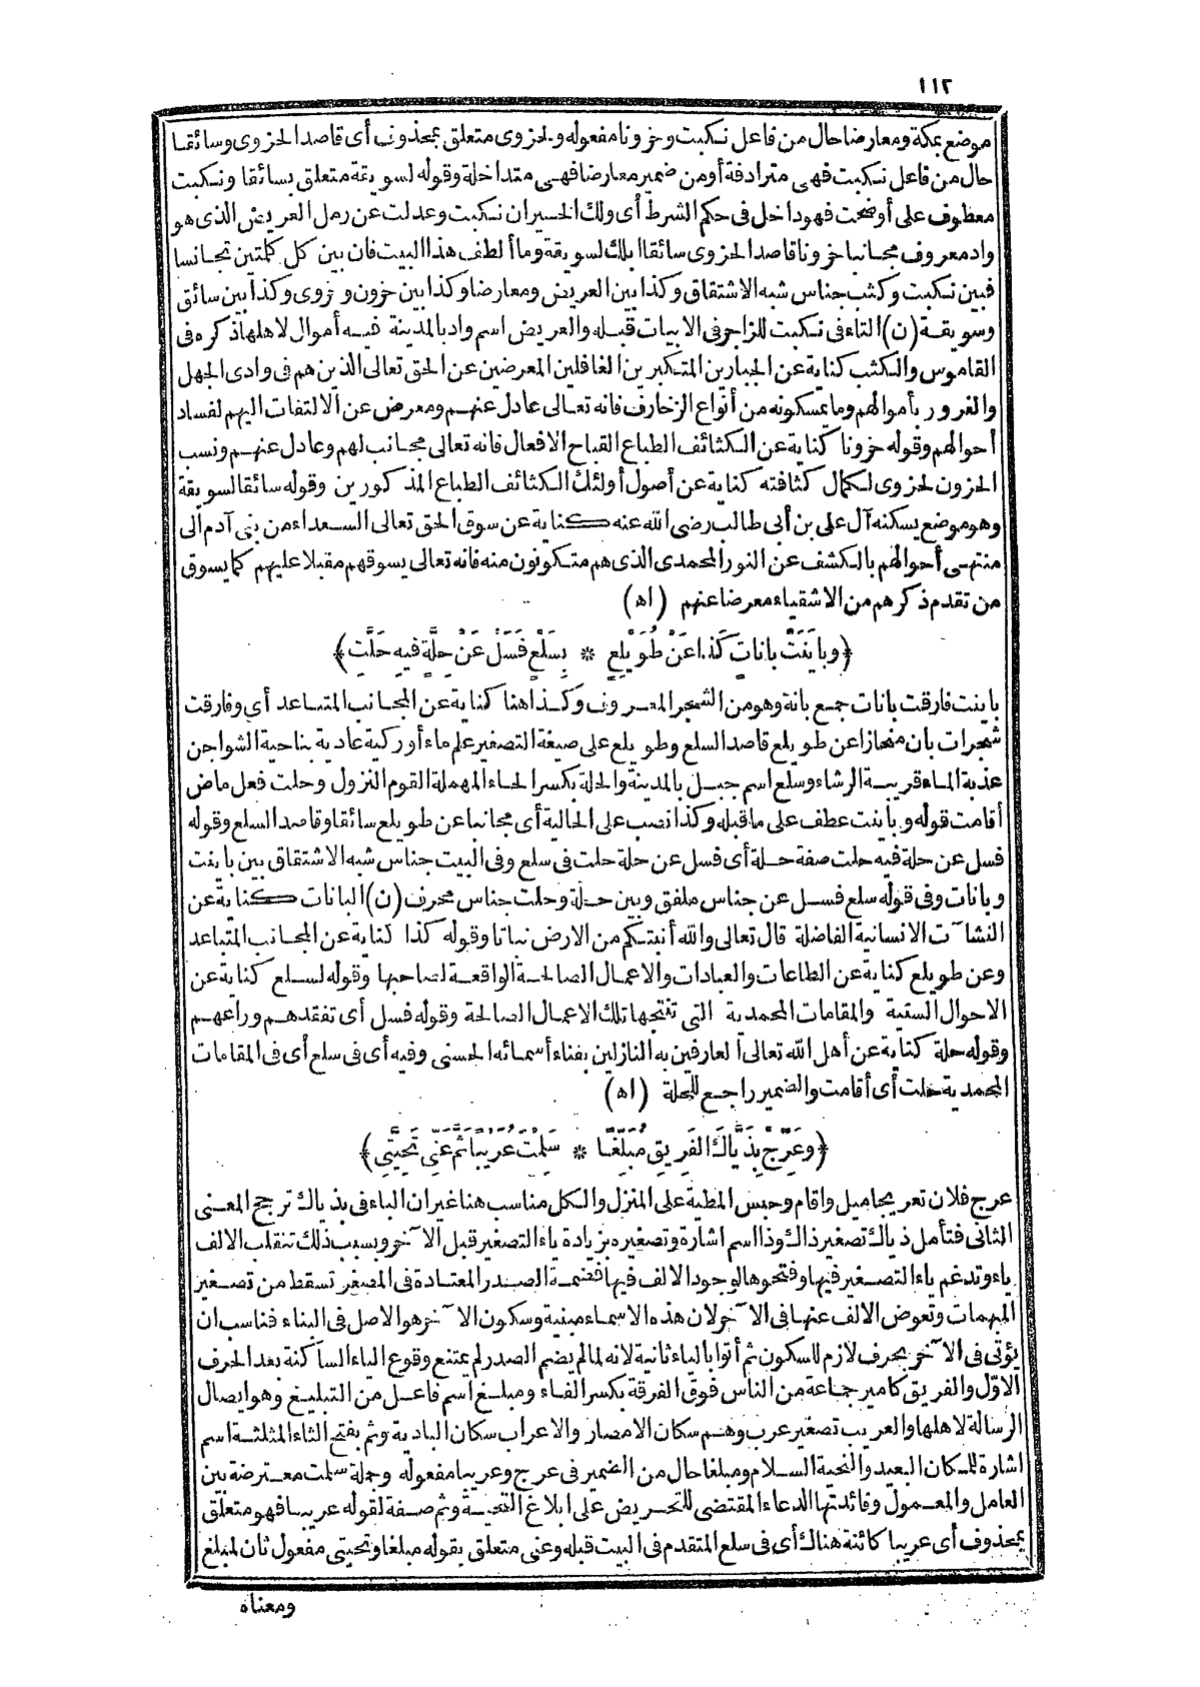 ١١٢
موضع بمكة ومعارضا حال من فاعل نكبت وحزونا مفعوله ولحزوى متعلق بمحذوف أى قاصدا لحزوى وسائقا
حال من فاعل نكبت فهى مترادفة أو من ضمير معارضا فهى متداخلة وقوله لسويقة متعلق بسائقا ونكبت
معطوف على أوضحت فهو داخل فى حكم الشرط أى ولك الخير ان نكبت وعدلت عن رمل العريض الذى هو
واد معروف مجانبا حزونا قاصدا لحزوى سائقا ابلك لسويقة وما ألطف هذا البيت فان بين كل كلمتين تجانسا
فبين نكبت وكثب جناس شبه الاشتقاق وكذا بين العريض ومعارضا وكذا بين حزون وحزوى وكذا بين سائق
وسويقة (ن) التاء فى نكبت للزاجر فى الابيات قبله والعريض اسم واد بالمدينة فيه أموال لاهلها ذكره فى
القاموس والكثب كناية عن الجبارين المتكبرين الغافلين المعرضين عن الحق تعالى الذين هم فى وادى الجهل
والغرور بأموالهم وما يمسكونه من أنواع الزخارف فانه تعالى عادل عنهم ومعرض عن الالتفات اليهم لفساد
أحوالهم وقوله حزونا كناية عن الكثائف الطباع القباح الافعال فانه تعالى مجانب لهم وعادل عنهم ونسب
الحزون لحزوى لكمال كثافته كناية عن أصول أولئك الكثائف الطباع المذكورين وقوله سائقا لسويقة
وهو موضع يسكنه آل على بن أبى طالب رضى الله عنه كناية عن سوق الحق تعالى السعداء من بنى آدم الى
منتهى أحوالهم بالكشف عن النور المحمدى الذى هم متكونون منه فانه تعالى يسوقهم مقبلا عليهم كما يسوق
من تقدم ذكرهم من الاشقياء معرضا عنهم (اه)
﴿وبايَنَتْ باناتٍ كَذا عَنْ طُوَيْلِعٍ * بِسَلْعٍ فَسَلْ عَنْ حِلَّةٍ فيهِ حَلَّتِ﴾
باينت فارقت بانات جمع بانة وهو من الشجر المعروف وكذا هنا كناية عن المجانب المتباعد أى وفارقت
شجرات بان منحازا عن طويلع قاصدا لسلع وطويلع على صيغة التصغير علم ماء أو ركية عادية بناحية الشواجن
عذبة الماء قريبة الرشاء وسلع اسم جبل بالمدينة والحلة بكسر الحاء المهملة القوم النزول وحلت فعل ماض
أقامت قوله وباينت عطف على ما قبله وكذا نصب على الحالية أى مجانبا عن طويلع سائقا وقاصدا لسلع وقوله
فسل عن حلة فيه حلت صفة حلة أى فسل عن حلة حلت فى سلع وفى البيت جناس شبه الاشتقاق بين باينت
وبانات وفى قوله سلع فسل عن جناس ملفق وبين حلة وحلت جناس محرف (ن) البانات كناية عن
النشآت الانسانية الفاضلة قال تعالى والله أنبتكم من الارض نباتا وقوله كذا كناية عن المجانب المتباعد
وعن طويلع كناية عن الطاعات والعبادات والاعمال الصالحة الواقعة لصاحبها وقوله لسلع كناية عن
الاحوال السنية والمقامات المحمدية التى تنتجها تلك الاعمال الصالحة وقوله فسل أى تفقدهم وراعهم
وقوله حلة كناية عن أهل الله تعالى العارفين به النازلين بفناء أسمائه الحسنى وفيه أى فى سلع أى فى المقامات
المحمدية حلت أى أقامت والضمير راجع للحلة (اه)
﴿وعَرِّجْ بِذَيّاكَ الفَرِيقِ مُبَلِّغًا * سَلِمْتَ عُرَيْبًا ثَمَّ عَنِّى تَحِيَّتِى﴾
عرج فلان تعريجا ميل واقام وحبس المطية على المنزل والكل مناسب هنا غير ان الباء فى بذياك ترجح المعنى
الثانى فتأمل ذياك تصغير ذاك وذا اسم اشارة وتصغيره بزيادة ياء التصغير قبل الآخر وبسبب ذلك تنقلب الالف
ياء وتدغم ياء التصغير فيها وفتحوها لوجود الالف فيها فضمة الصدر المعتادة فى المصغر تسقط من تصغير
المبهمات وتعوض الالف عنها فى الآخر لان هذه الاسماء مبنية وسكون الآخر هو الاصل فى البناء فناسب ان
يؤتى فى الآخر بحرف لازم للسكون ثم أتوا بالياء ثانية لانه لما لم يضم الصدر لم يمتنع وقوع الياء الساكنة بعد الحرف
الاوّل والفريق كامير جماعة من الناس فوق الفرقة بكسر الفاء ومبلغ اسم فاعل من التبليغ وهو ايصال
الرسالة لاهلها والعريب تصغير عرب وهم سكان الامصار والاعراب سكان البادية وثم بفتح الثاء المثلثة اسم
اشارة للمكان البعيد والتحية السلام ومبلغا حال من الضمير فى عرج وعريبا مفعوله وجملة سلمت معترضة بين
العامل والمعمول وفائدتها الدعاء المقتضى للتحريض على ابلاغ التحية وثم صفة لقوله عريبا فهو متعلق
بمحذوف أى عريبا كائنة هناك أى فى سلع المتقدم فى البيت قبله وعنى متعلق بقوله مبلغا وتحيتى مفعول ثان لمبلغ
ومعناه